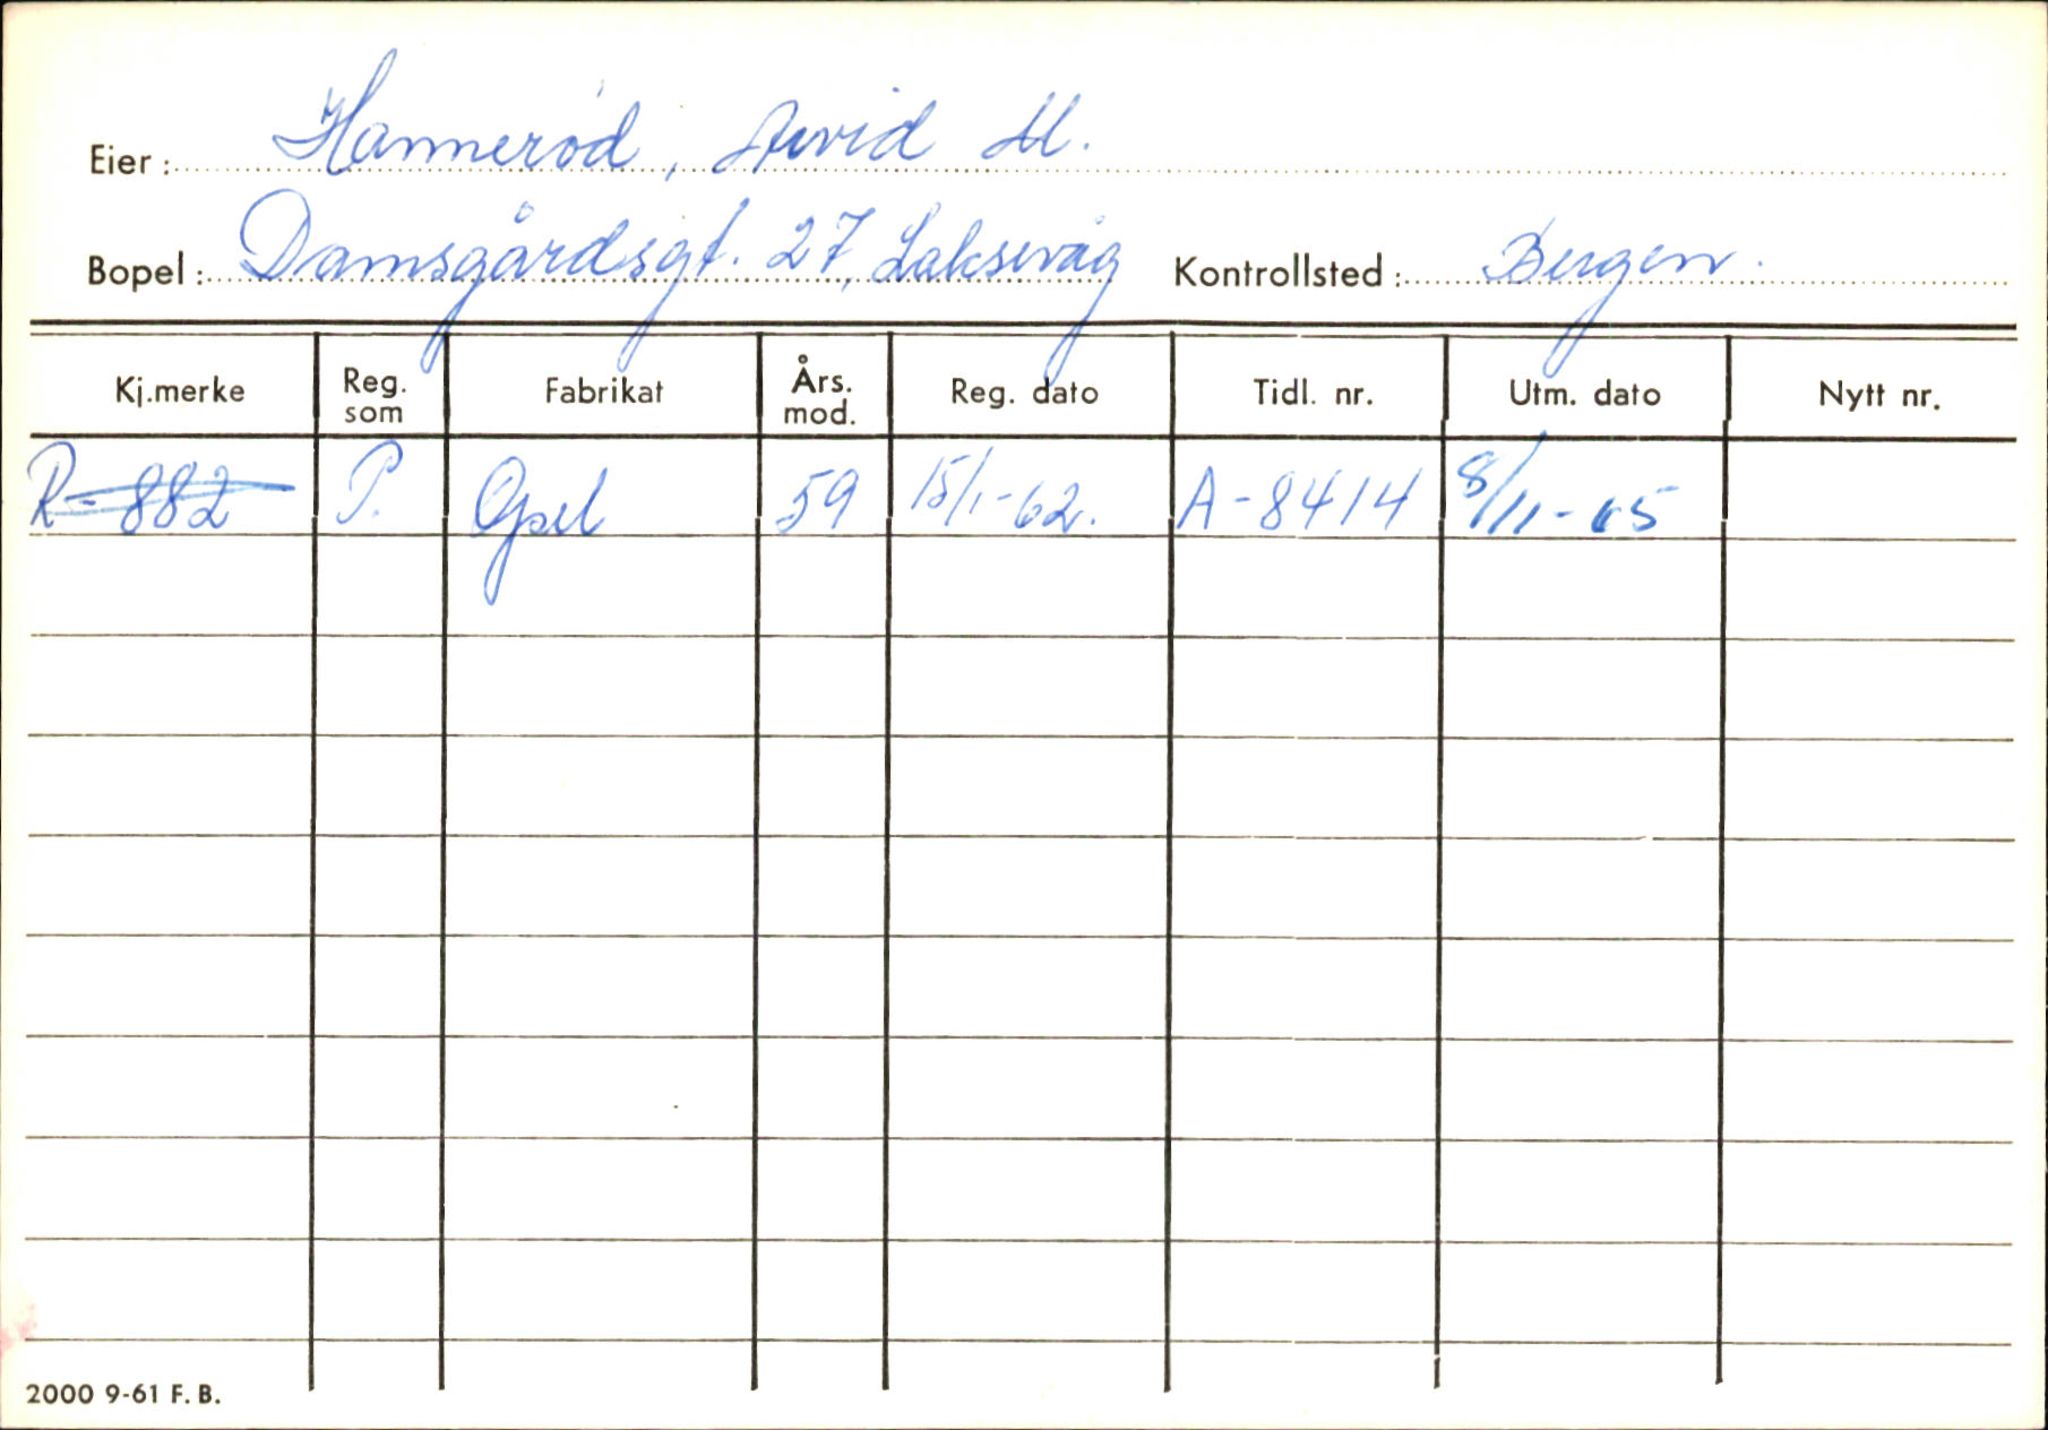 Eier: Hannerød, Arvid M.
Bopel: Damsgårdsgt. 27, Laksevåg Kontrollsted: Bergen.
Kj.merke Reg. som Fabrikat Års. mod. Reg. dato Tidl. nr. Utm. dato Nytt nr.
R-882 P. Opel 59 15/1-62. A-8414 8/11-65
2000 9-61 F. B.